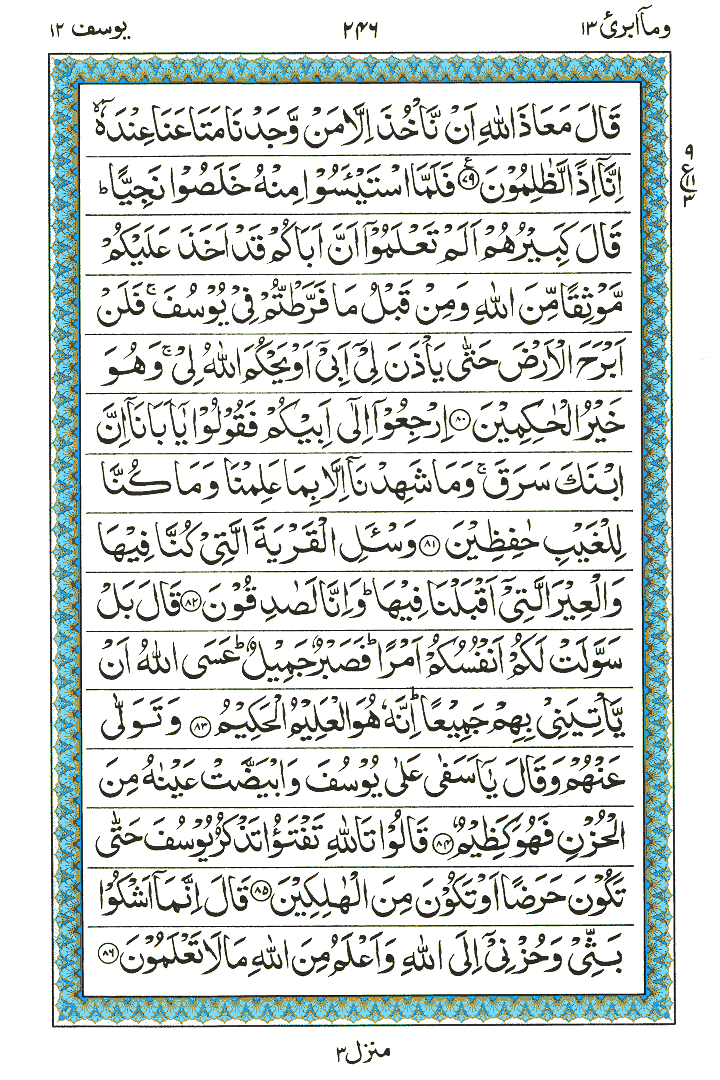 وماۤ ابرئ ١٣
٢٤٦
یوسف ١٢
قَالَ مَعَاذَ اللّٰهِ اَنْ نَّاْخُذَ اِلَّا مَنْ وَّجَدْنَا مَتَاعَنَا عِنْدَهٗۤ ۙ
اِنَّاۤ اِذًا لَّظٰلِمُوْنَ ﴿٧٩﴾ ع فَلَمَّا اسْتَیْـَٔسُوْا مِنْهُ خَلَصُوْا نَجِیًّا ؕ
قَالَ كَبِیْرُهُمْ اَلَمْ تَعْلَمُوْۤا اَنَّ اَبَاكُمْ قَدْ اَخَذَ عَلَیْكُمْ
مَّوْثِقًا مِّنَ اللّٰهِ وَمِنْ قَبْلُ مَا فَرَّطْتُّمْ فِیْ یُوْسُفَ ۚ فَلَنْ
اَبْرَحَ الْاَرْضَ حَتّٰی یَاْذَنَ لِیْۤ اَبِیْۤ اَوْ یَحْكُمَ اللّٰهُ لِیْ ۚ وَهُوَ
خَیْرُ الْحٰكِمِیْنَ ﴿٨٠﴾ اِرْجِعُوْۤا اِلٰۤی اَبِیْكُمْ فَقُوْلُوْا یٰۤاَبَانَاۤ اِنَّ
ابْنَكَ سَرَقَ ۚ وَمَا شَهِدْنَاۤ اِلَّا بِمَا عَلِمْنَا وَمَا كُنَّا
لِلْغَیْبِ حٰفِظِیْنَ ﴿٨١﴾ وَسْـَٔلِ الْقَرْیَةَ الَّتِیْ كُنَّا فِیْهَا
وَالْعِیْرَ الَّتِیْۤ اَقْبَلْنَا فِیْهَا ؕ وَاِنَّا لَصٰدِقُوْنَ ﴿٨٢﴾ قَالَ بَلْ
سَوَّلَتْ لَكُمْ اَنْفُسُكُمْ اَمْرًا ؕ فَصَبْرٌ جَمِیْلٌ ؕ عَسَی اللّٰهُ اَنْ
یَّاْتِیَنِیْ بِهِمْ جَمِیْعًا ؕ اِنَّهٗ هُوَ الْعَلِیْمُ الْحَكِیْمُ ﴿٨٣﴾ وَتَوَلّٰی
عَنْهُمْ وَقَالَ یٰۤاَسَفٰی عَلٰی یُوْسُفَ وَابْیَضَّتْ عَیْنٰهُ مِنَ
الْحُزْنِ فَهُوَ كَظِیْمٌ ﴿٨٤﴾ قَالُوْا تَاللّٰهِ تَفْتَؤُا تَذْكُرُ یُوْسُفَ حَتّٰی
تَكُوْنَ حَرَضًا اَوْ تَكُوْنَ مِنَ الْهٰلِكِیْنَ ﴿٨٥﴾ قَالَ اِنَّمَاۤ اَشْكُوْا
بَثِّیْ وَحُزْنِیْۤ اِلَی اللّٰهِ وَاَعْلَمُ مِنَ اللّٰهِ مَا لَا تَعْلَمُوْنَ ﴿٨٦﴾
٩
ع ١١
٣
منزل ٣